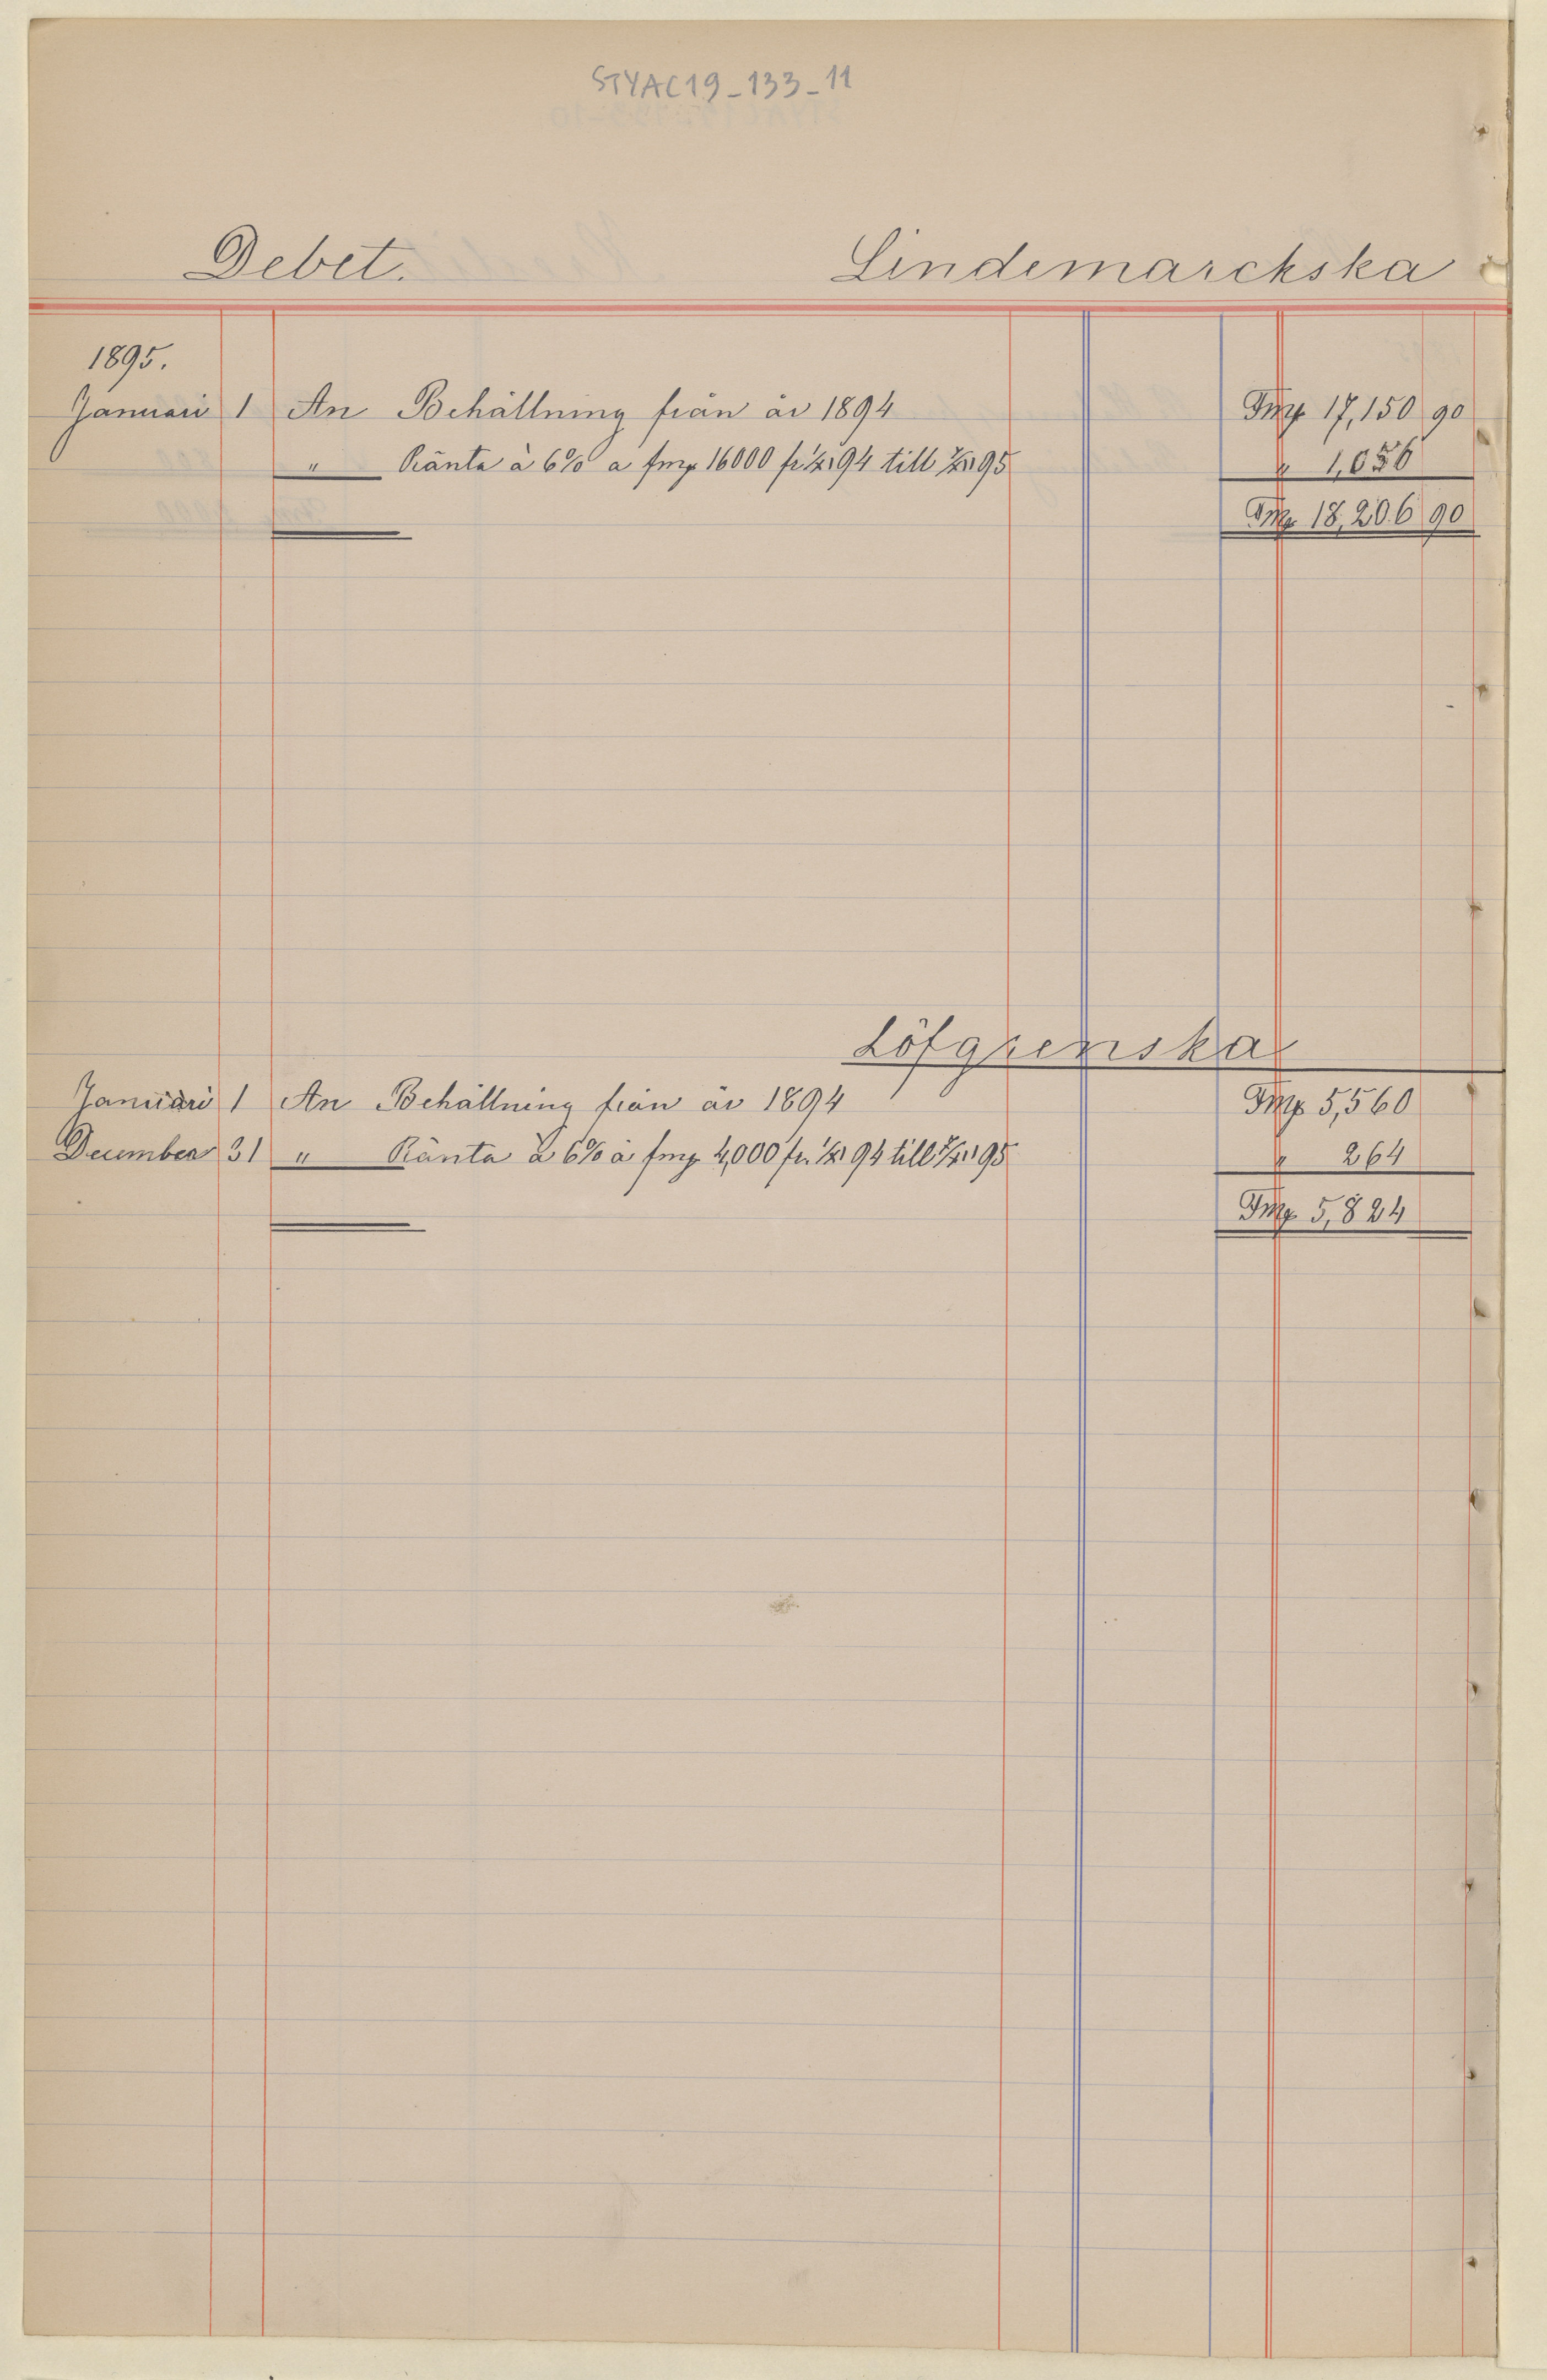 STYAC19_133_11
Debet. Lindemarckska
1895.
Januari 1 An Behållning från år 1894 Fmk 17,150 90
" Ränta à 6% a fmk 16000 fr 1/XII 94 till 31/XII 95 " 1,056
Fmk 18,206 90
Löfgrenska
Januari 1 An Behållning från år 1894 Fmk 5,560
December 31 " Ränta à 6% à fmk 4,000 fr. 1/XII 94 till 31/XII 95 " 264
Fmk 5,824